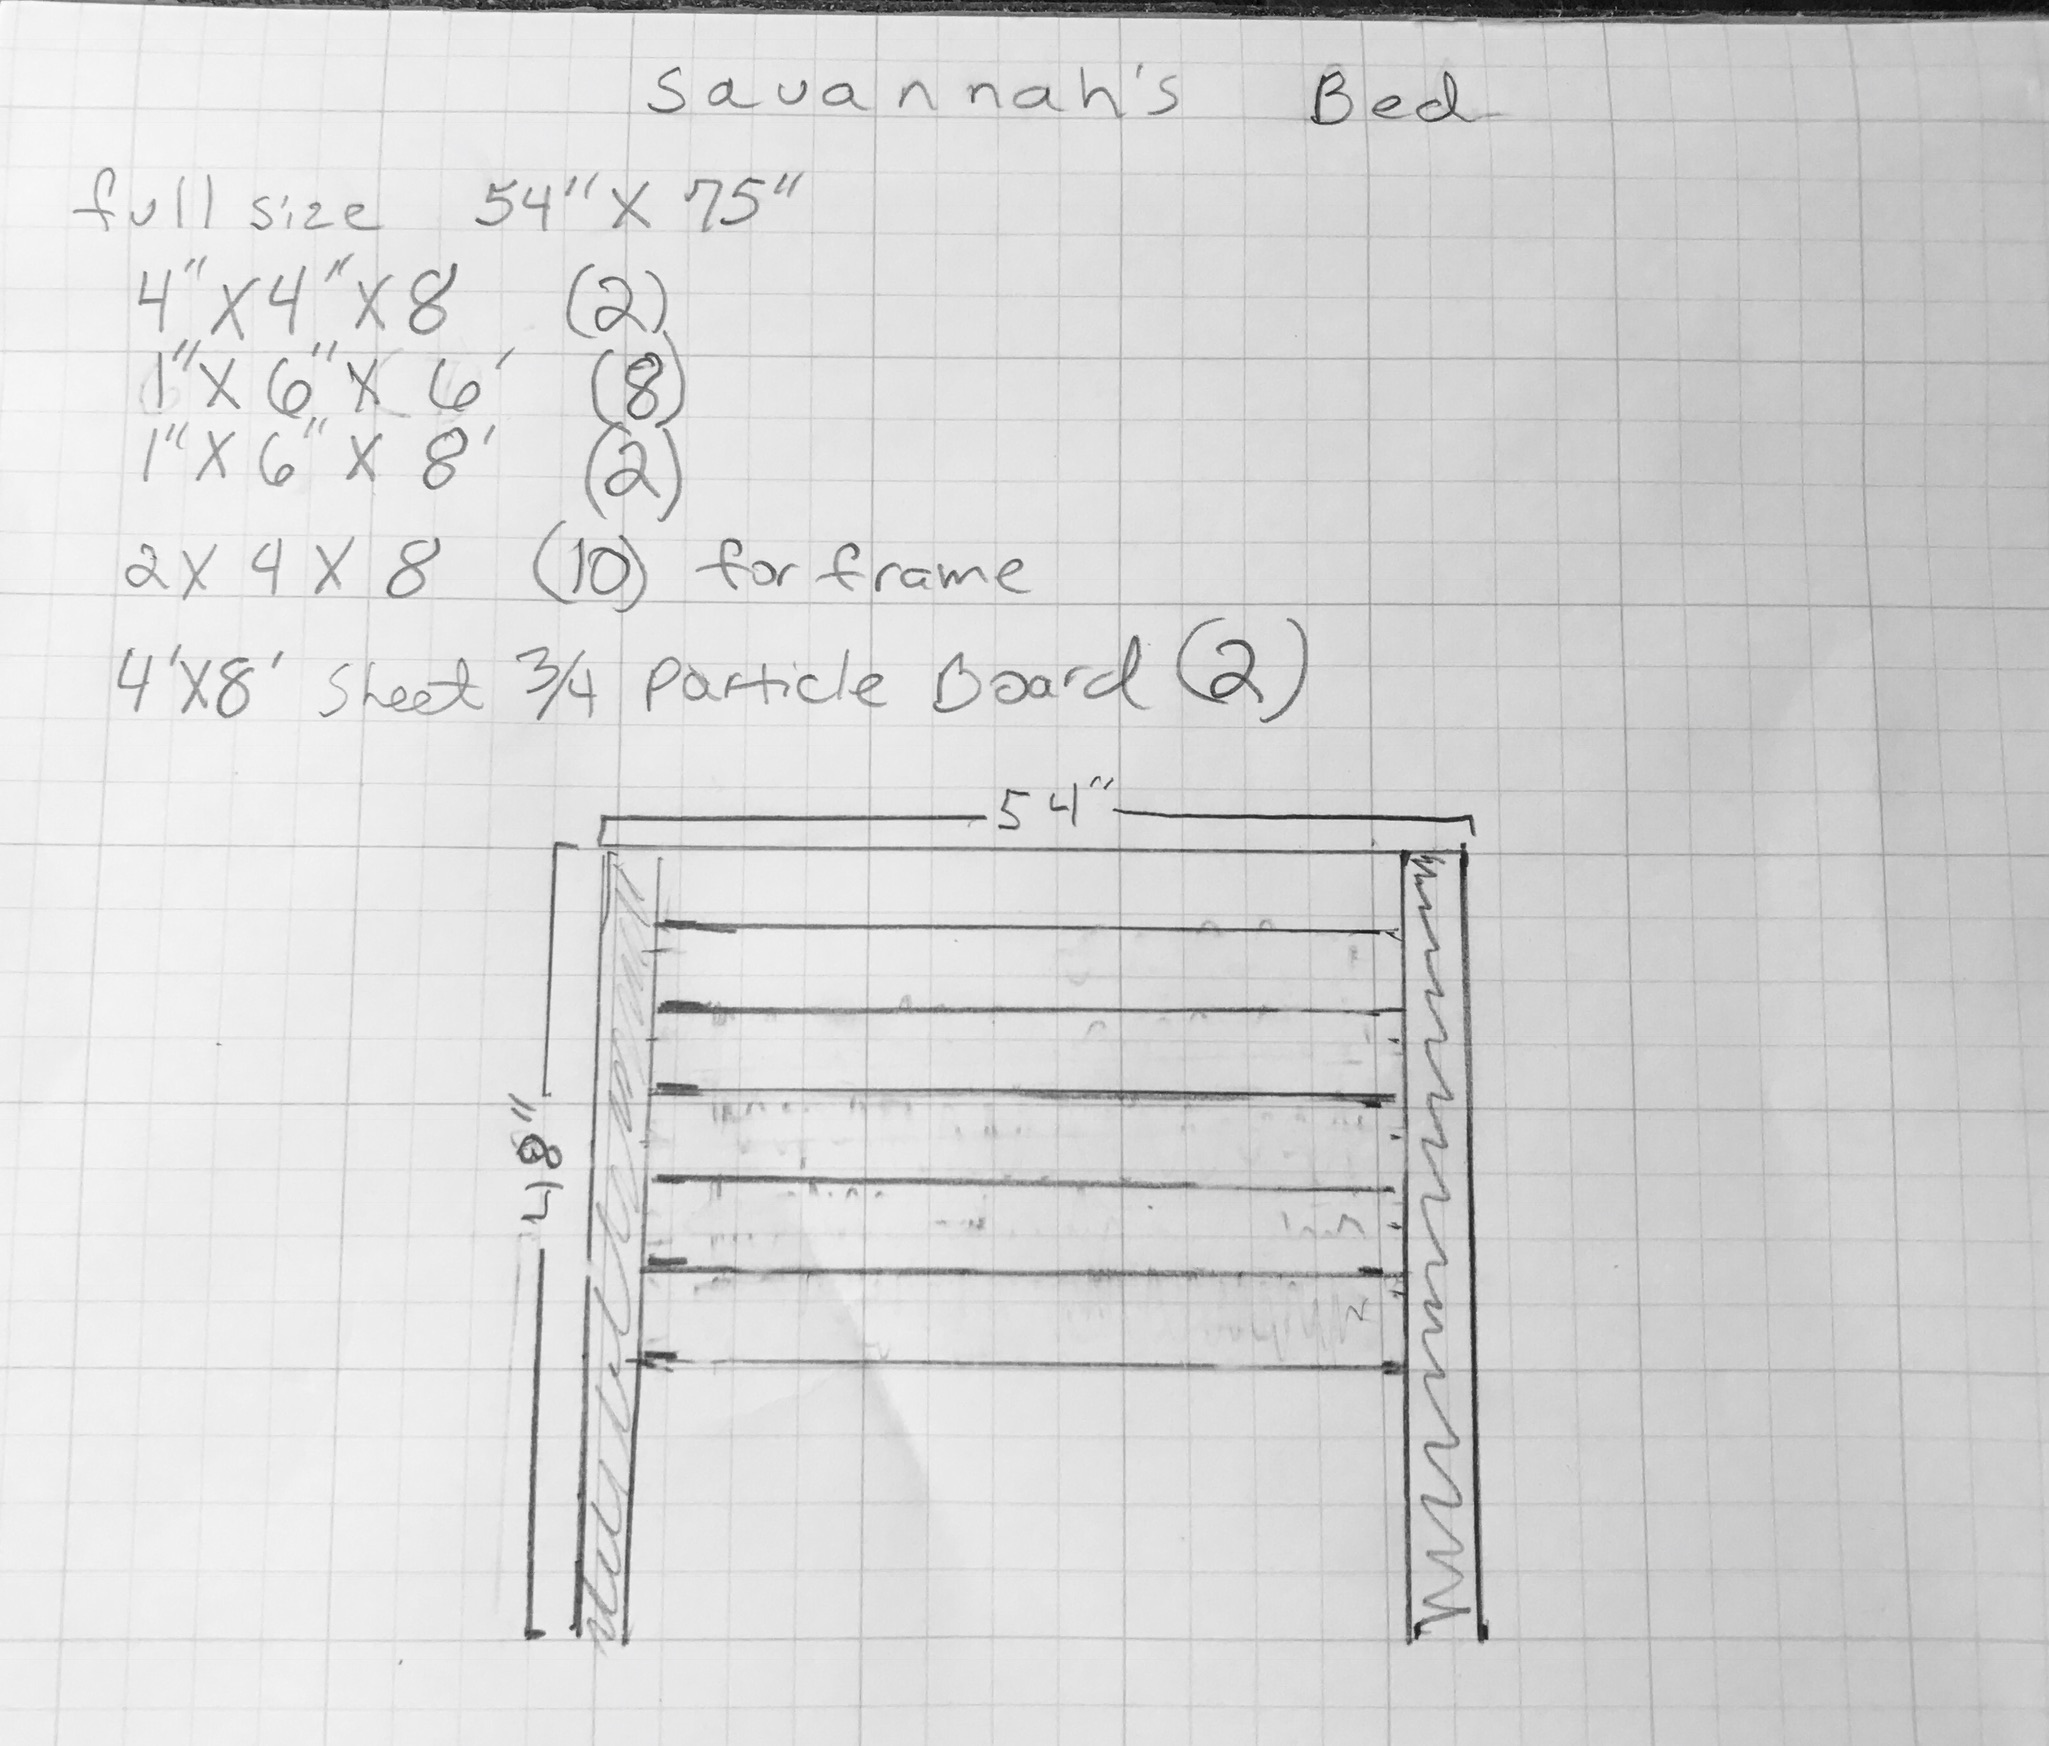 Savannah's Bed
full size 54" X 75"
4" X 4" X 8 (2)
1" X 6" X 6' (8)
1" X 6" X 8' (2)
2 X 4 X 8 (10) for frame
4'X8' Sheet 3/4 Particle Board (2)
54"
48"